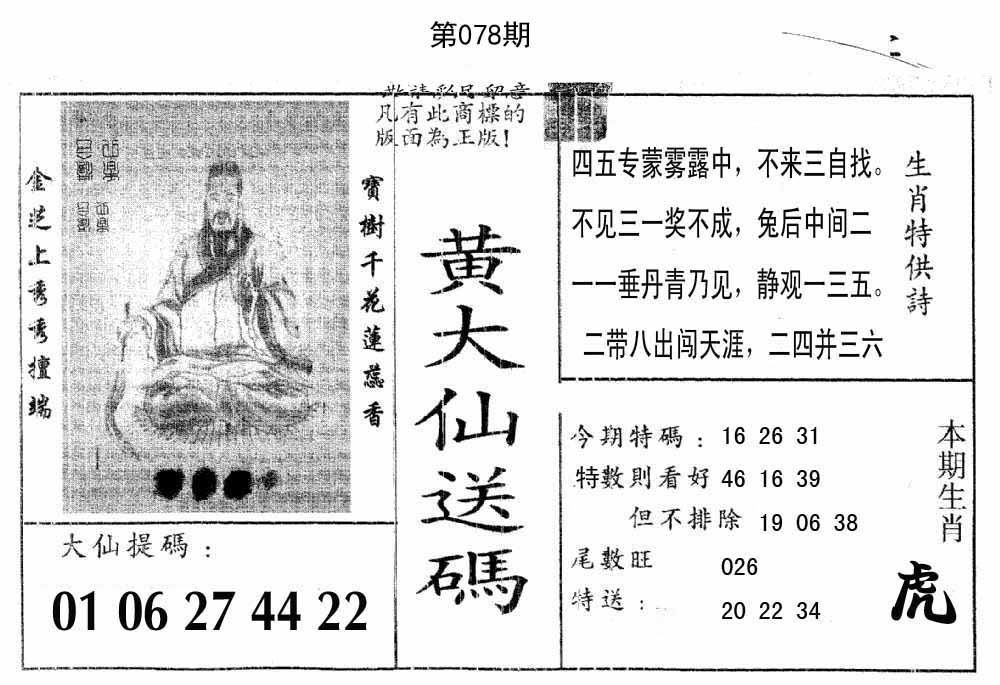 第078期
敬請彩民留意
凡有此商標的
版面為正版！
金芝上秀秀擅端
寶樹千花蓮蕊香
黃大仙送碼
四五专蒙雾露中，不来三自找。
不见三一奖不成，兔后中间二
一一垂丹青乃见，静观一三五。
二带八出闯天涯，二四并三六
生肖特供詩
今期特碼：16 26 31
特數則看好 46 16 39
但不排除 19 06 38
尾數旺 026
特送： 20 22 34
本期生肖
虎
大仙提碼：
01 06 27 44 22